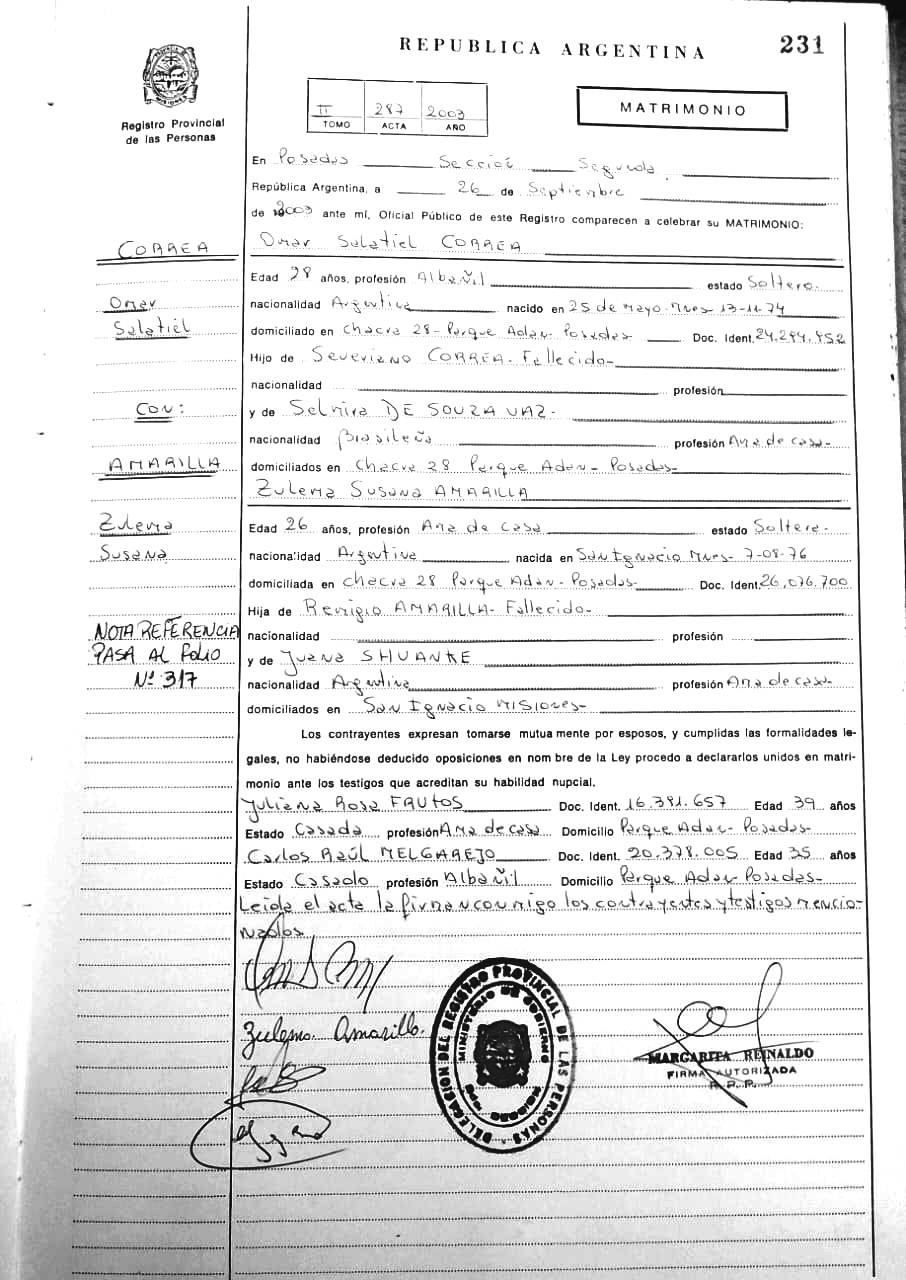 REPUBLICA ARGENTINA
231
Registro Provincial
de las Personas
II 287 2003
TOMO ACTA AÑO
MATRIMONIO
En Posadas Sección Segunda
República Argentina, a 26 de Septiembre
de 2003 ante mí, Oficial Público de este Registro comparecen a celebrar su MATRIMONIO:
CORREA
Omar Salatiel CORREA
Edad 28 años, profesión Albañil estado Soltero.
Omar
nacionalidad Argentina nacido en 25 de Mayo-Mnes-13-11-74
Salatiel
domiciliado en Chacra 28-Parque Adam-Posadas Doc. Ident. 24.294.452
Hijo de Severiano CORREA-Fallecido-
nacionalidad profesión
CON:
y de Selmira DE SOUZA VAZ-
nacionalidad Brasileña profesión Ama de casa-
AMARILLA
domiciliados en Chacra 28 Parque Adam-Posadas-
Zulema Susana AMARILLA
Zulema
Edad 26 años, profesión Ama de Casa estado Soltera-
Susana
nacionalidad Argentina nacida en San Ignacio Mnes-7-08-76
domiciliada en Chacra 28 Parque Adam-Posadas- Doc. Ident. 26.076.700
Hija de Remigio AMARILLA-Fallecido-
NOTA REFERENCIA
PASA AL FOLIO
Nº 317
nacionalidad profesión
y de Juana SHUANKE
nacionalidad Argentina profesión Ama de casa-
domiciliados en San Ignacio MISIONES-
Los contrayentes expresan tomarse mutuamente por esposos, y cumplidas las formalidades le-
gales, no habiéndose deducido oposiciones en nombre de la Ley procedo a declararlos unidos en matri-
monio ante los testigos que acreditan su habilidad nupcial.
Juliana Rosa FRUTOS Doc. Ident. 16.381.657 Edad 39 años
Estado Casada profesión Ama de casa Domicilio Parque Adam-Posadas-
Carlos Raúl MELGAREJO Doc. Ident. 20.378.005 Edad 35 años
Estado Casado profesión Albañil Domicilio Parque Adam-Posadas-
Leida el acta la firman conmigo los contrayentes y testigos mencio-
nados
Zulema. Amarillo.
DELEGACION DEL REGISTRO PROVINCIAL DE LAS PERSONAS
MINISTERIO DE GOBIERNO
MARGARITA REINALDO
FIRMA AUTORIZADA
R. P. P.